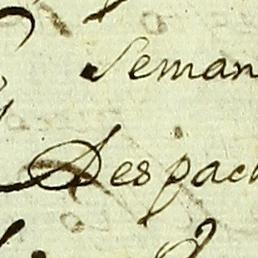 Seman
Despach